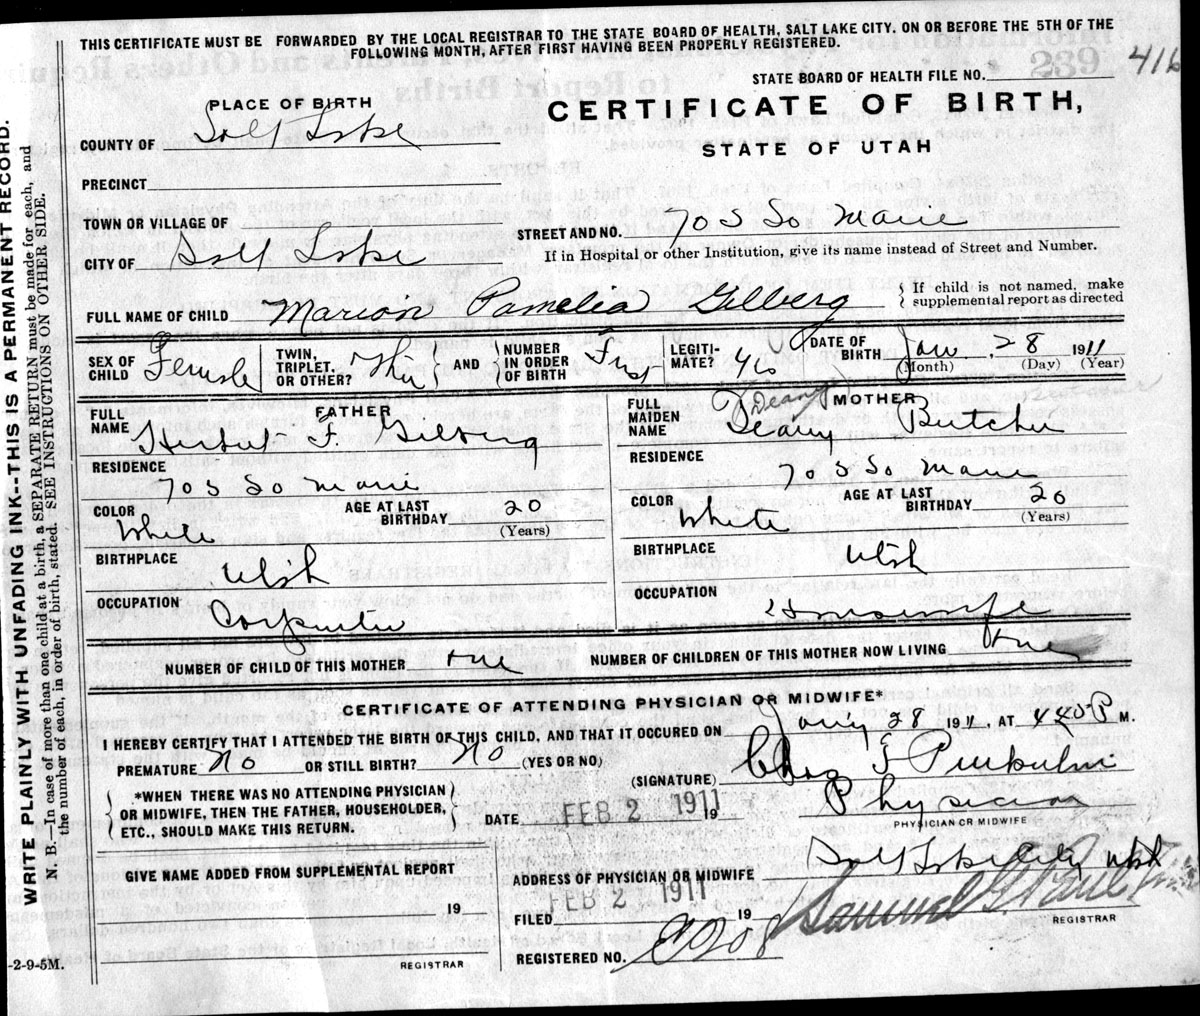 THIS CERTIFICATE MUST BE FORWARDED BY THE LOCAL REGISTRAR TO THE STATE BOARD OF HEALTH, SALT LAKE CITY, ON OR BEFORE THE 5TH OF THE
FOLLOWING MONTH, AFTER FIRST HAVING BEEN PROPERLY REGISTERED.
STATE BOARD OF HEALTH FILE NO. 239 416
PLACE OF BIRTH
CERTIFICATE OF BIRTH,
STATE OF UTAH
COUNTY OF Salt Lake
PRECINCT
TOWN OR VILLAGE OF
CITY OF Salt Lake
STREET AND NO. 70 S So Main
If in Hospital or other Institution, give its name instead of Street and Number.
FULL NAME OF CHILD Marion Pamelia Gilberg
If child is not named, make
supplemental report as directed
SEX OF
CHILD Female
TWIN,
TRIPLET,
OR OTHER?
AND
NUMBER
IN ORDER
OF BIRTH First
LEGITI-
MATE? Yes
DATE OF
BIRTH Jan 28 1911
(Month) (Day) (Year)
FATHER
FULL
NAME Herbert F. Gilberg
RESIDENCE
70 S So Main
COLOR White
AGE AT LAST
BIRTHDAY 20
(Years)
BIRTHPLACE
Utah
OCCUPATION
Carpenter
MOTHER
FULL
MAIDEN
NAME Butcher
RESIDENCE
70 S So Main
COLOR White
AGE AT LAST
BIRTHDAY 20
(Years)
BIRTHPLACE
Utah
OCCUPATION
Housewife
NUMBER OF CHILD OF THIS MOTHER one
NUMBER OF CHILDREN OF THIS MOTHER NOW LIVING one
CERTIFICATE OF ATTENDING PHYSICIAN OR MIDWIFE*
I HEREBY CERTIFY THAT I ATTENDED THE BIRTH OF THIS CHILD, AND THAT IT OCCURED ON Jan'y 28 1911, AT P M.
PREMATURE No OR STILL BIRTH? No (YES OR NO)
(SIGNATURE) Chas F
*WHEN THERE WAS NO ATTENDING PHYSICIAN
OR MIDWIFE, THEN THE FATHER, HOUSEHOLDER,
ETC., SHOULD MAKE THIS RETURN.
DATE FEB 2 1911 19
Physician
PHYSICIAN OR MIDWIFE
GIVE NAME ADDED FROM SUPPLEMENTAL REPORT
19
REGISTRAR
ADDRESS OF PHYSICIAN OR MIDWIFE Salt Lake City Utah
FILED FEB 2 1911 19
Samuel G. Paul
REGISTRAR
REGISTERED NO.
-2-9-5M.
WRITE PLAINLY WITH UNFADING INK--THIS IS A PERMANENT RECORD.
N. B.—In case of more than one child at a birth, a SEPARATE RETURN must be made for each, and
the number of each, in order of birth, stated. SEE INSTRUCTIONS ON OTHER SIDE.